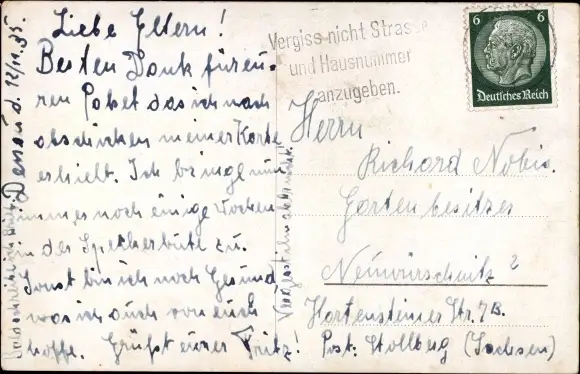 Dessau d. 12/11.35.
Liebe Eltern!
Besten Dank für eu-
ren Paket das ich nach
abschicken meiner Karte
erhielt. Ich bringe nun
immer noch einige Wochen
in der Speckerbute zu.
Sonst bin ich noch Gesund
was ich auch von euch
hoffe. Grüßt eurer Fritz!
Vergiss nicht Strasse
und Hausnummer
anzugeben.
6 6
Deutsches Reich
Herrn
Richard Nobis.
Gartenbesitzer
Neuwürschnitz
Hartensteiner Str. 7B.
Post: Stollberg (Sachsen)